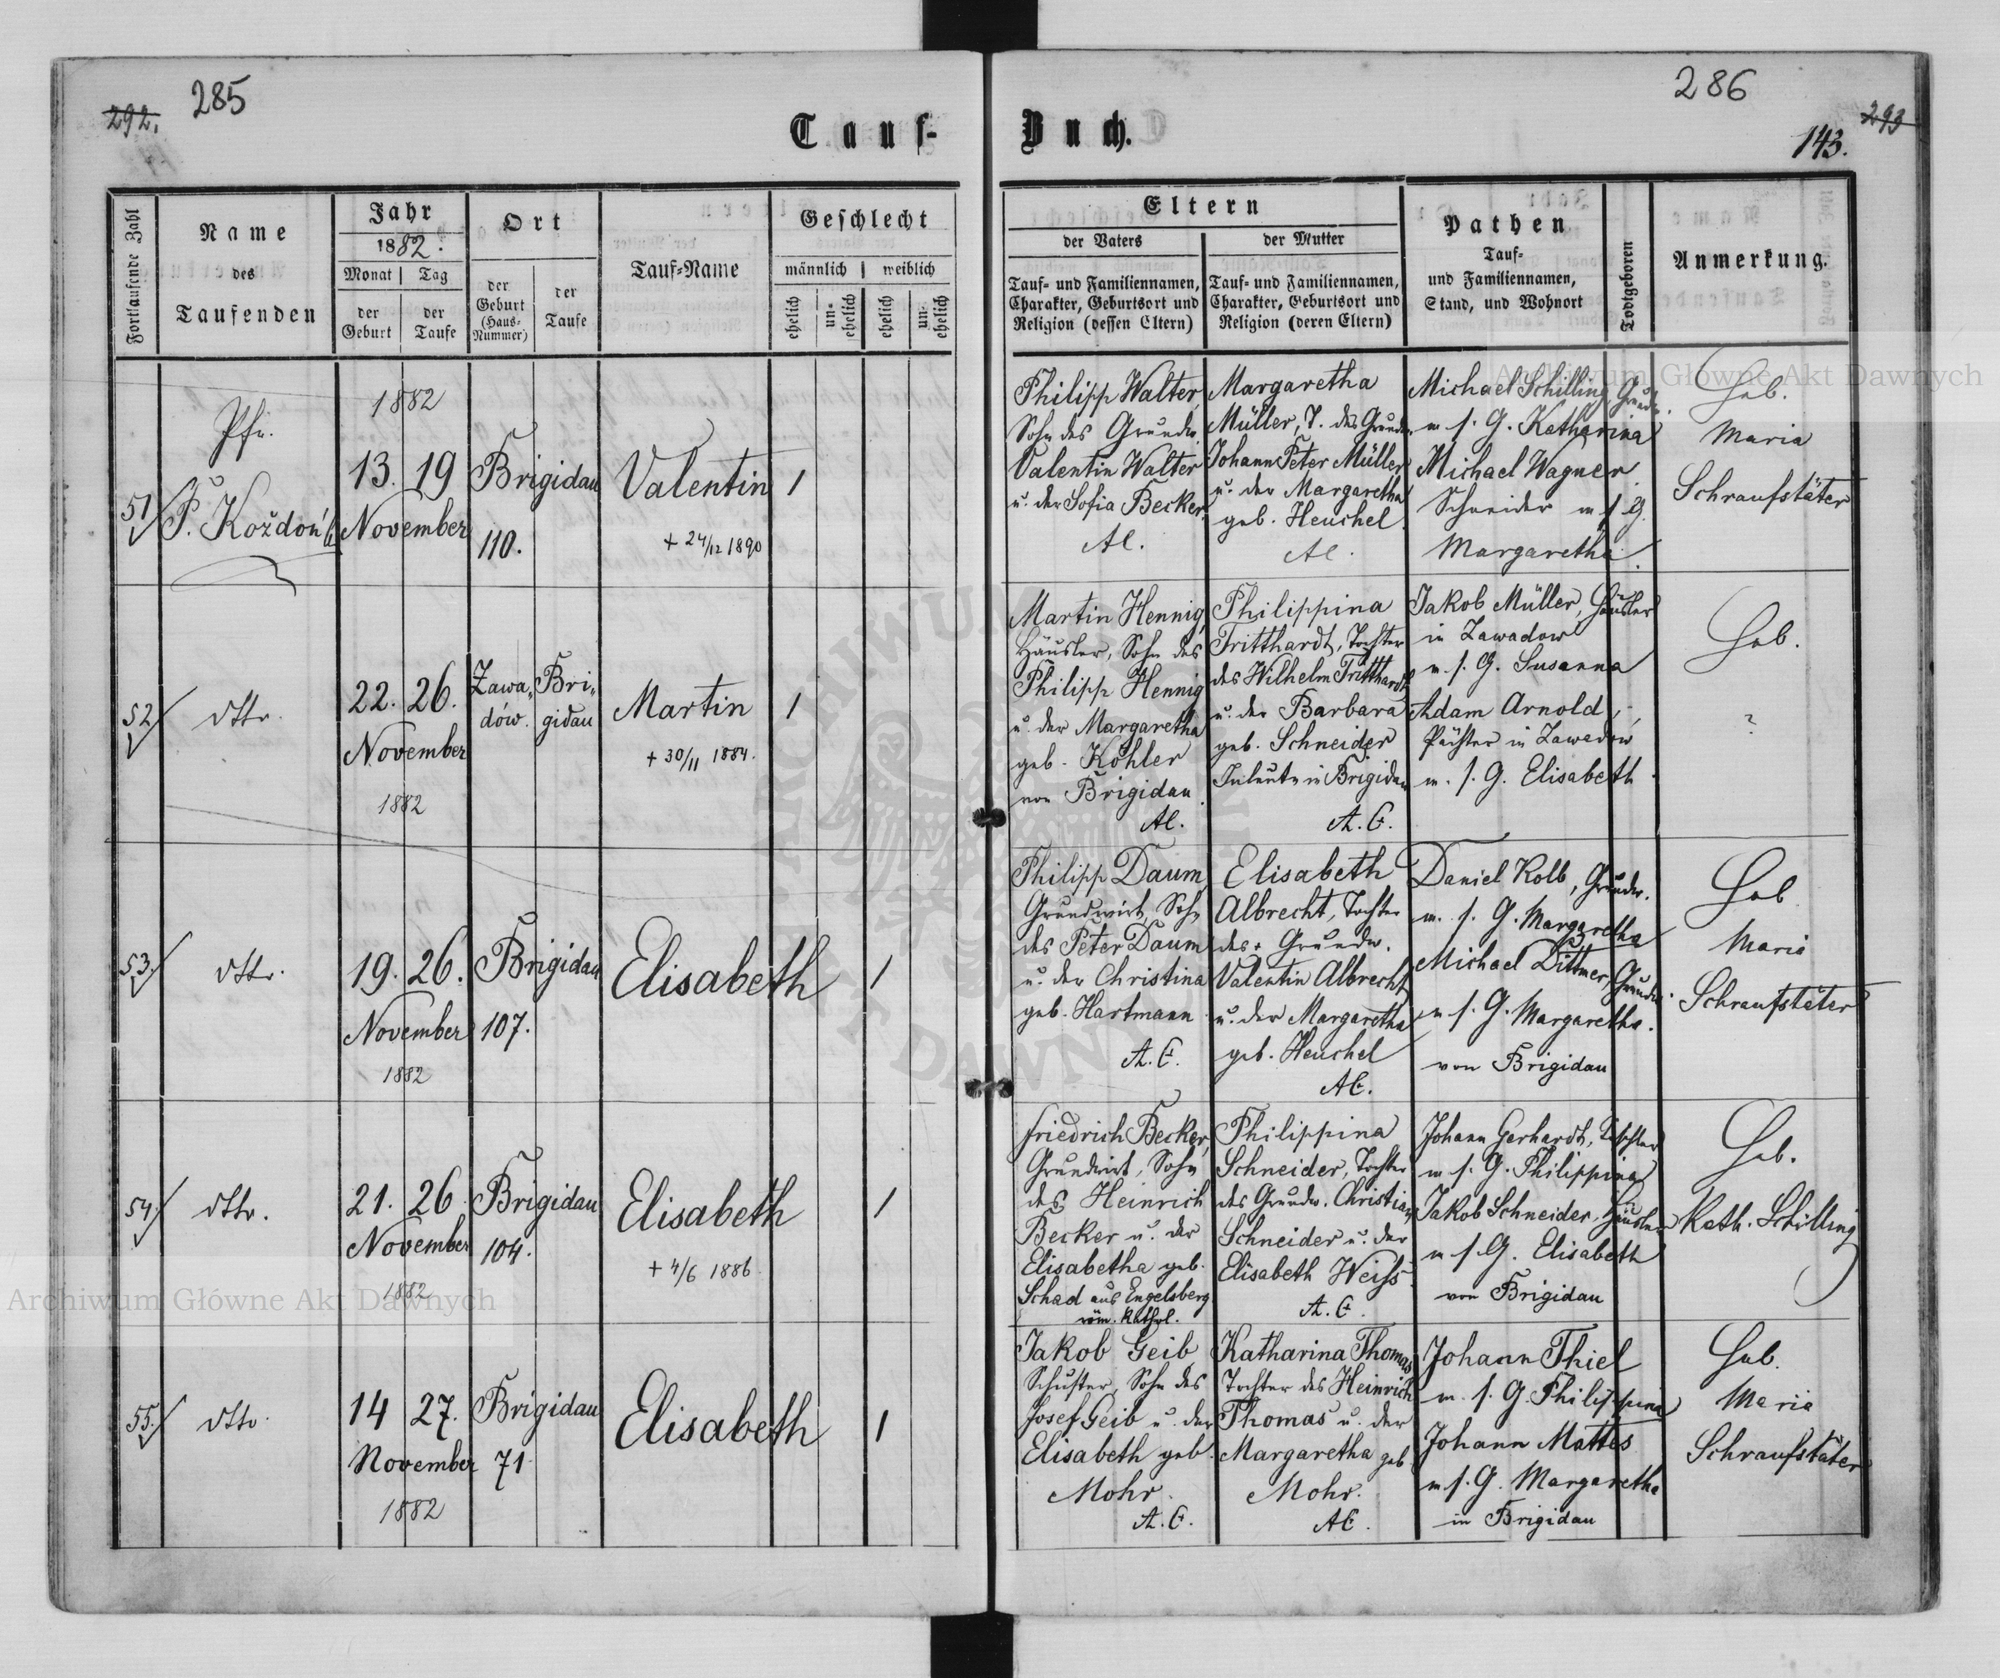 292.
285
Tauf-
Fortlaufende Zahl
Name
des
Taufenden
Jahr
1882.
Monat | Tag
der Geburt
der Taufe
Ort
der
Geburt
(Haus-
Nummer)
der
Taufe
Tauf-Name
Geschlecht
männlich | weiblich
ehelich
un-
ehelich
ehelich
un-
ehelich
51
Pfr.
P. Koždoń
1882
13. 19
November
Brigidau
110.
Valentin
+ 24/12 1890
1
52
dtto.
22. 26.
November
1882
Zawa„
dów.
Bri„
gidau
Martin
+ 30/11 1884.
1
53.
dtto.
19. 26.
November
1882
Brigidau
107.
Elisabeth
1
54
dtto.
21. 26
November
1882
Brigidau
104.
Elisabeth
+ 4/6 1886
1
55.
dtto.
14 27.
November
1882
Brigidau
71
Elisabeth
1
286
293
143.
Buch.
Eltern
der Vaters
der Mutter
Tauf- und Familiennamen,
Charakter, Geburtsort und
Religion (dessen Eltern)
Tauf- und Familiennamen,
Charakter, Geburtsort und
Religion (deren Eltern)
Pathen
Tauf-
und Familiennamen,
Stand, und Wohnort
Todtgeboren
Anmerkung.
Philipp Walter,
Sohn des Grundw.
Valentin Walter
u. der Sofia Becker.
AC.
Margaretha
Müller, T. des Grundw.
Johann Peter Müller
u. der Margaretha
geb. Heuchel.
AC.
Michael Schilling, Grundw.
m s. G. Katharina
Michael Wagner
Schneider m s G.
Margaretha.
Heb.
Maria
Schraufstäter
Martin Hennig,
Häusler, Sohn des
Philipp Hennig
u. der Margaretha
geb. Köhler
von Brigidau.
AC.
Philippina
Tritthardt, Tochter
des Wilhelm Tritthardt
u. der Barbara
geb. Schneider
Inleute in Brigidau
A. C.
Jakob Müller, Häusler
in Zawadow
m. s. G. Susanna
Adam Arnold,
Pächter in Zawadow
m. s. G. Elisabeth.
Heb.
?
Philipp Daum,
Grundwirt, Sohn
des Peter Daum
u. der Christina
geb. Hartmann
A. C.
Elisabeth
Albrecht, Tochter
des + Grundw.
Valentin Albrecht
u. der Margaretha
geb. Heuchel
AC.
Daniel Kolb, Grundw.
m. s. G. Margaretha
Michael Dittmer, Grundw.
m s. G. Margaretha.
von Brigidau
Heb
Maria
Schraufstäter
Friedrich Becker,
Grundwirt, Sohn
des Heinrich
Becker u. der
Elisabetha geb.
Schad aus Engelsberg
röm. Kathol.
Philippina
Schneider, Tochter
des Grundw. Christian
Schneider u. der
Elisabeth Weiss
A. C.
Johann Gerhardt, Tischler
m s. G. Philippina
Jakob Schneider, Häusler
m s. G. Elisabeth
von Brigidau
Heb.
Kath. Schilling
Jakob Geib,
Schuster, Sohn des
Josef Geib u. der
Elisabeth geb.
Mohr.
A. C.
Katharina Thomas
Tochter des Heinrich
Thomas u. der
Margaretha geb
Mohr.
AC.
Johann Thiel
m. s. G. Philippina
Johann Mattes
m s. G. Margaretha
in Brigidau
Heb.
Maria
Schraufstäter
Archiwum Główne Akt Dawnych
Archiwum Główne Akt Dawnych